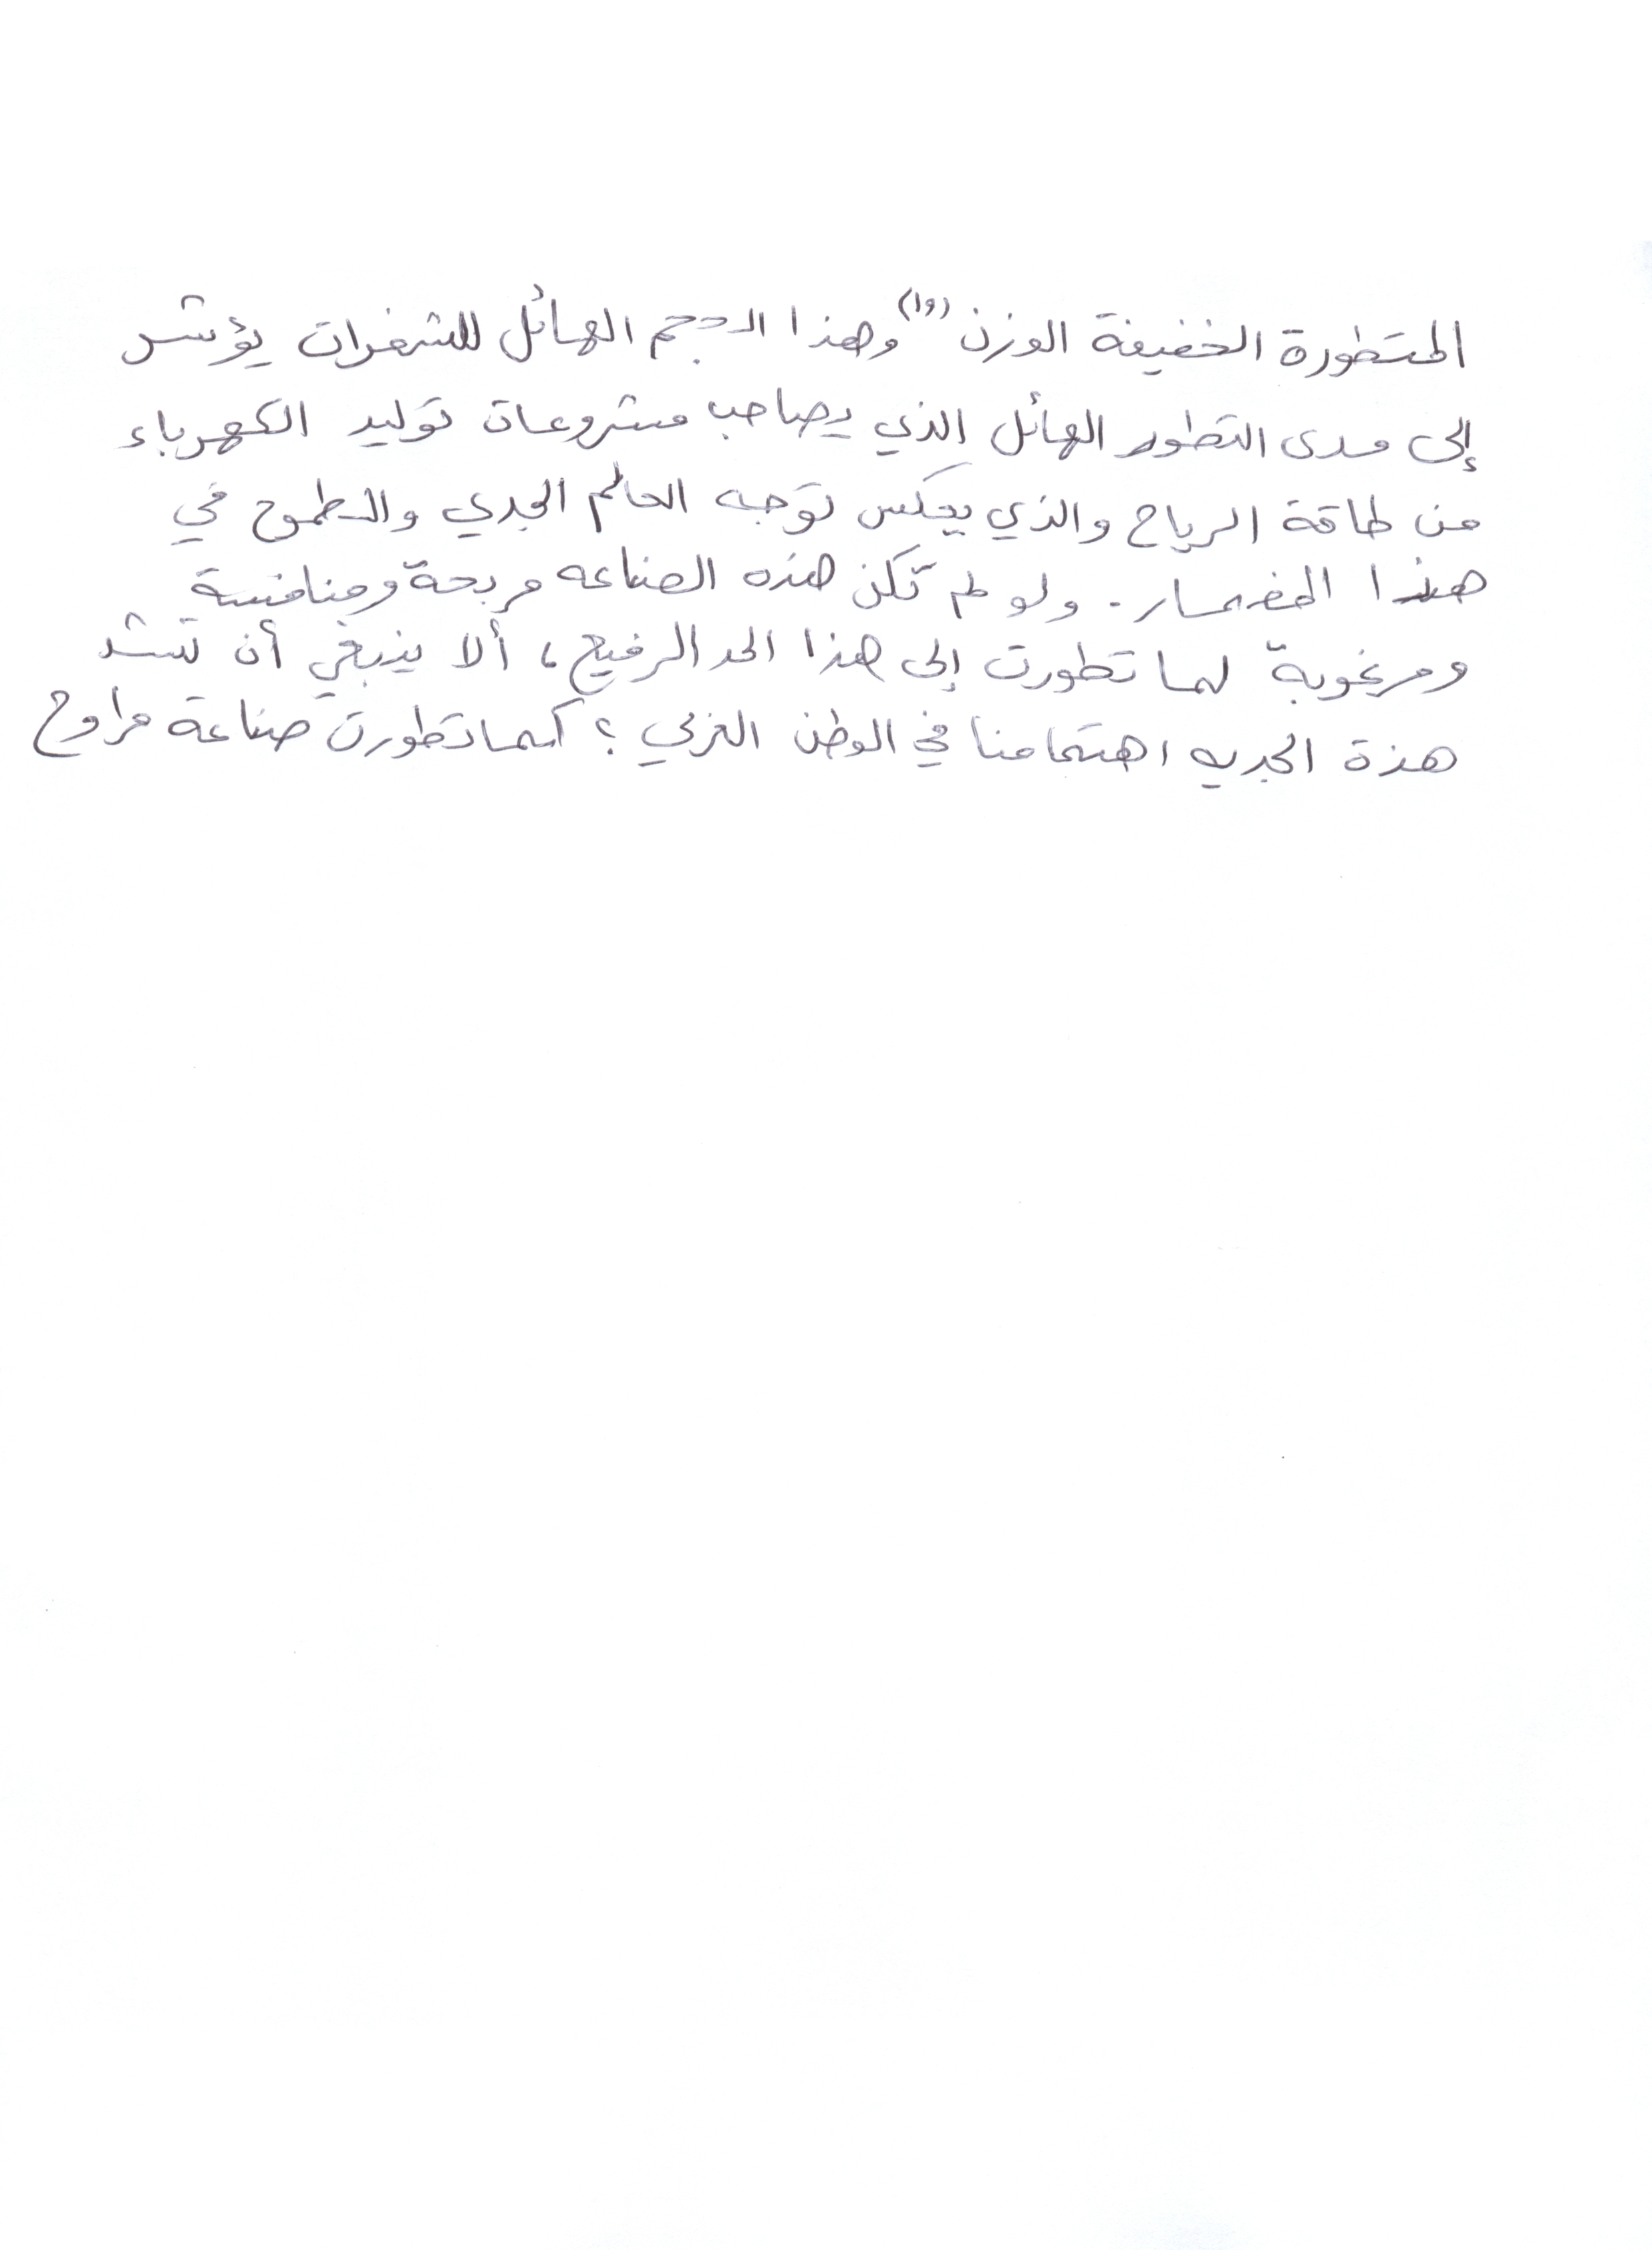 المتطورة الخفيفة الوزن (١٥) وهذا الحجم الهائل للشفرات يؤشر
إلى مدى التطور الهائل الذي يصاحب مشروعات توليد الكهرباء
من طاقة الرياح والذي يعكس توجه العالم الجدي والطموح في
هذا المضمار. ولو لم تكن هذه الصناعه مربحة ومنافسة
ومرغوبة لما تطورت إلى هذا الحد الرفيع، ألا ينبغي أن تشد
هذة الجديه اهتمامنا في الوطن العربي؟ كما تطورت صناعة مراوح